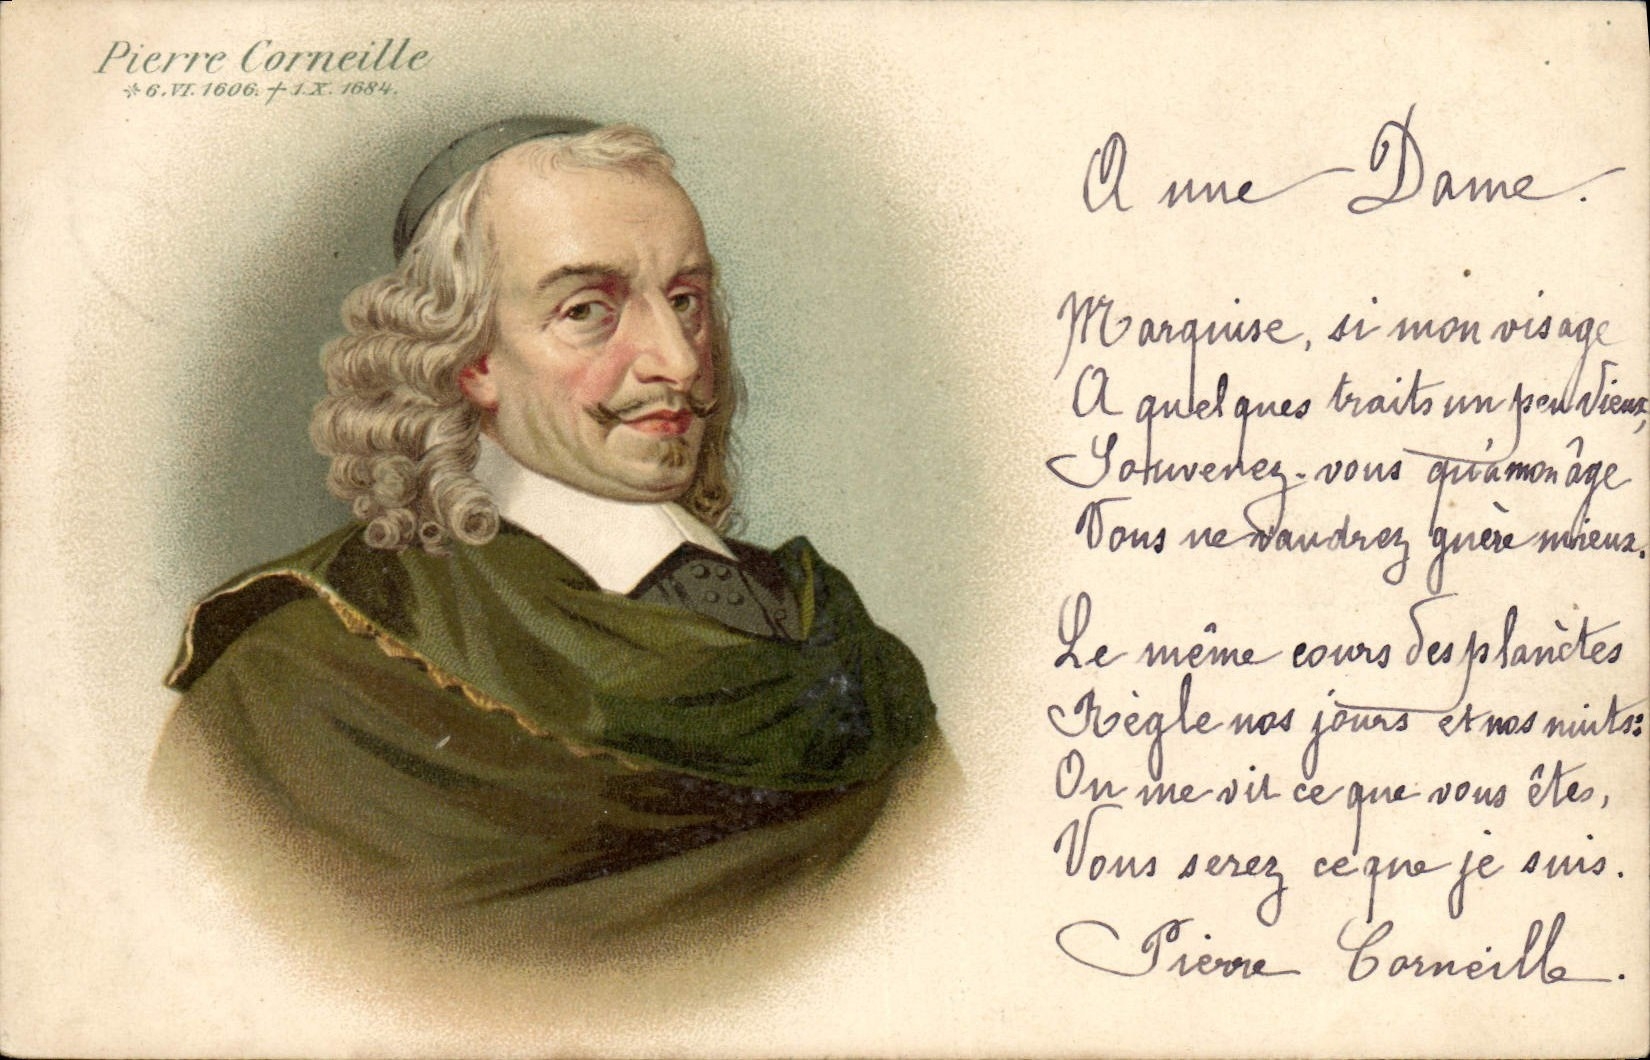 Pierre Corneille
* 6.VI.1606. † 1.X.1684.
A une Dame.
Marquise, si mon visage
A quelques traits un peu vieux,
Souvenez-vous qu'à mon âge
Vous ne vaudrez guère mieux.
Le même cours des planètes
Règle nos jours et nos nuits:
On me vit ce que vous êtes,
Vous serez ce que je suis.
Pierre Corneille.